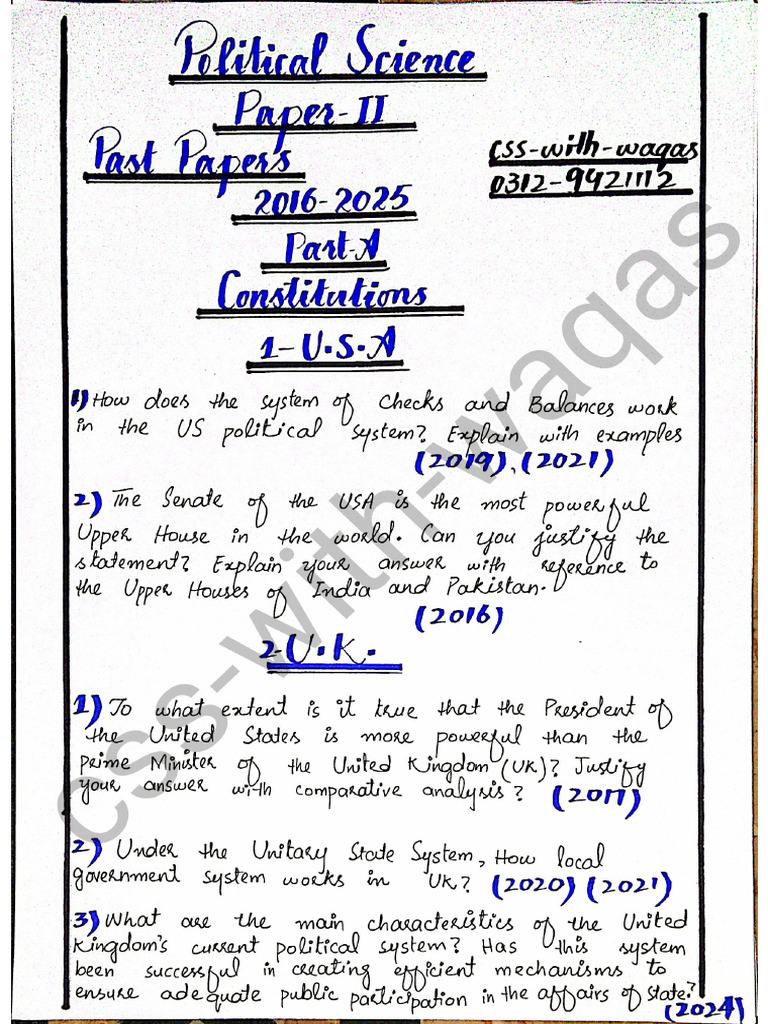 Political Science
Paper-II
Past Papers
css-with-waqas
0312-9421112
2016-2025
Part-A
Constitutions
1-U.S.A
1) How does the system of Checks and Balances work
in the US political system? Explain with examples
(2019), (2021)
2) The Senate of the USA is the most powerful
Upper House in the world. Can you justify the
statement? Explain your answer with reference to
the Upper Houses of India and Pakistan.
(2016)
2-U.K.
1) To what extent is it true that the President of
the United States is more powerful than the
Prime Minister of the United Kingdom (UK)? Justify
your answer with comparative analysis? (2017)
2) Under the Unitary State System, How local
government system works in UK? (2020) (2021)
3) What are the main characteristics of the United
Kingdom's current political system? Has this system
been successful in creating efficient mechanisms to
ensure adequate public participation in the affairs of state?
(2024)
css-with-waqas